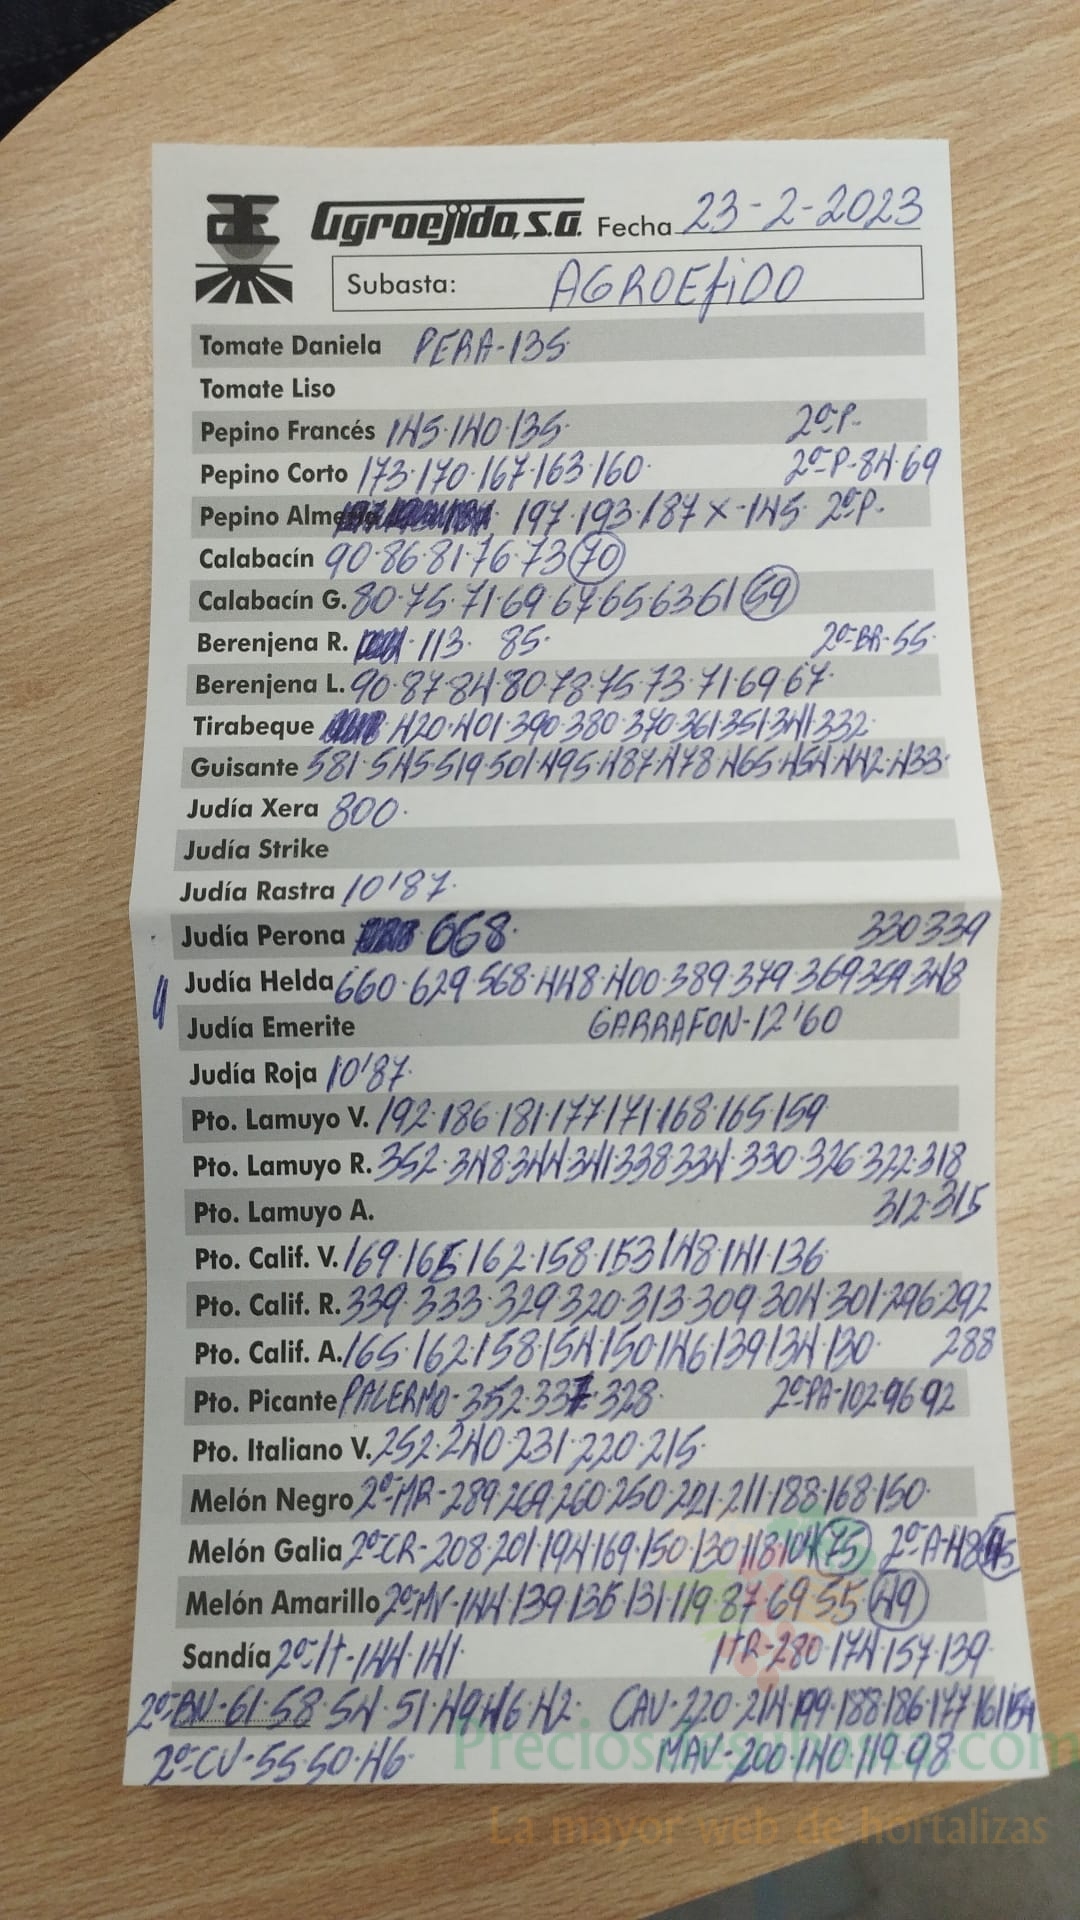 Æ Agroejido, S.A. Fecha 23-2-2023
Subasta: AGROEJIDO
Tomate Daniela PERA-135
Tomate Liso
Pepino Francés 145·140·135· 2ª-P-
Pepino Corto 173·170·167·163·160· 2ª-P-84·69
Pepino Almería 197·193·187 X-145· 2ª-P-
Calabacín 90·86·81·76·73 70
Calabacín G. 80·75·71·69·67·65·63·61 59
Berenjena R. 113· 85· 2ª-BR-55·
Berenjena L. 90·87·84·80·78·75·73·71·69·67·
Tirabeque 420·401·390·380·370·361·351·341·332·
Guisante 581·545·519·501·495·487·478·465·454·442·433·
Judía Xera 800·
Judía Strike
Judía Rastra 10'87·
Judía Perona 668· 330·339
Judía Helda 660·629·568·448·400·389·379·369·359·348
Judía Emerite GARRAFON-12'60
Judía Roja 10'87·
Pto. Lamuyo V. 192·186·181·177·171·168·165·159
Pto. Lamuyo R. 352·348·344·341·338·334·330·326·322·318
Pto. Lamuyo A. 312·315
Pto. Calif. V. 169·165·162·158·153·148·141·136
Pto. Calif. R. 339·333·329·320·313·309·304·301·296·292
Pto. Calif. A. 165·162·158·154·150·146·139·134·130· 288
Pto. Picante PALERMO-352·337·328· 2ª-PA-102·96·92
Pto. Italiano V. 252·240·231·220·215·
Melón Negro 2ª-MR-289·269·260·250·221·211·188·168·150·
Melón Galia 2ª-CR-208·201·194·169·150·130·118·104 75 2ª-A-48 45
Melón Amarillo 2ª-MV-144·139·135·131·119·87·69·55 49
Sandía 2ª-It-144·141· ItR-280·174·157·139·
2ª-BN-61·58·54·51·49·46·42 CAV-220·214·199·188·186·177·161·154
2ª-CV-55·50·46· MAV-200·140·119·98
.com
La mayor web de hortalizas